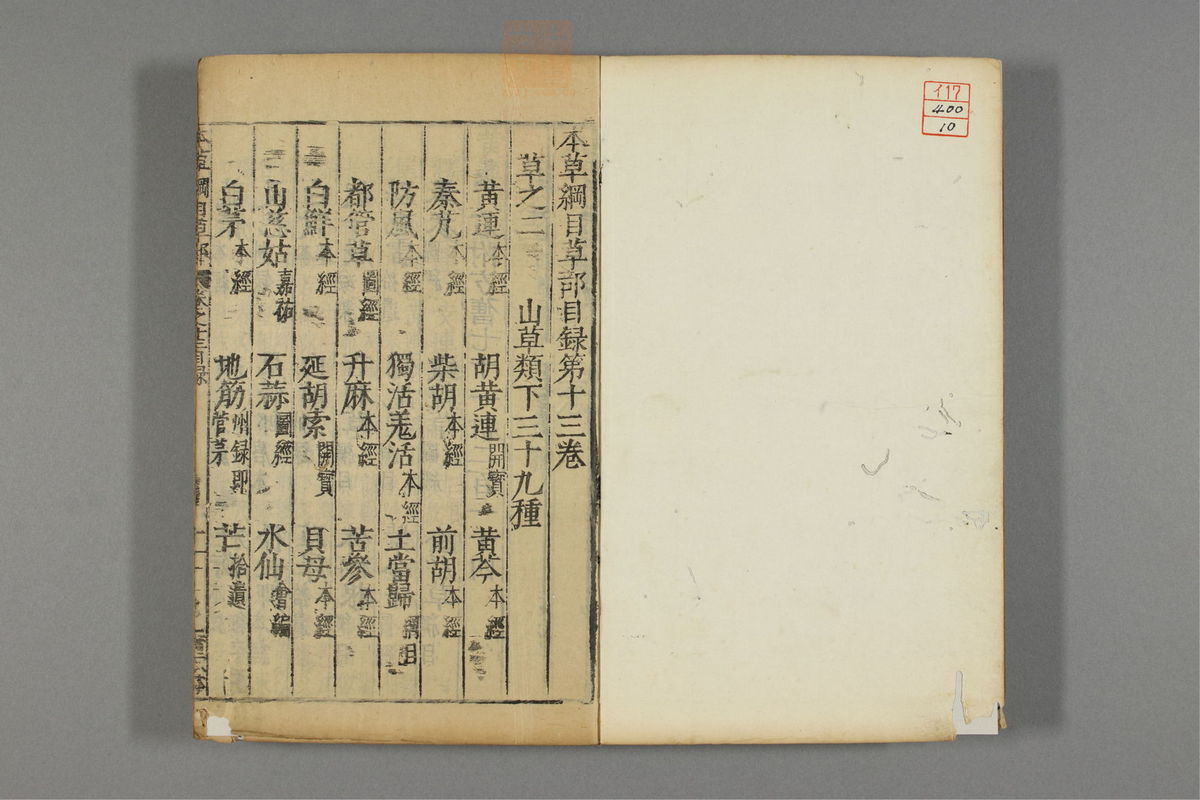 117
400
10
本草綱目草部目録第十三卷
草之二　山草類下三十九種
黄連本經　胡黄連開寶　黄芩本經
秦艽本經　柴胡本經　前胡本經
防風本經　獨活羗活本經　土當歸綱目
都管草圖經　升麻本經　苦參本經
白鮮本經　延胡索開寶　貝母本經
山慈姑嘉祐　石蒜圖經　水仙會編
白茅本經　地筋別録即菅茅　芒拾遺
本草綱目草部　卷之十三目録